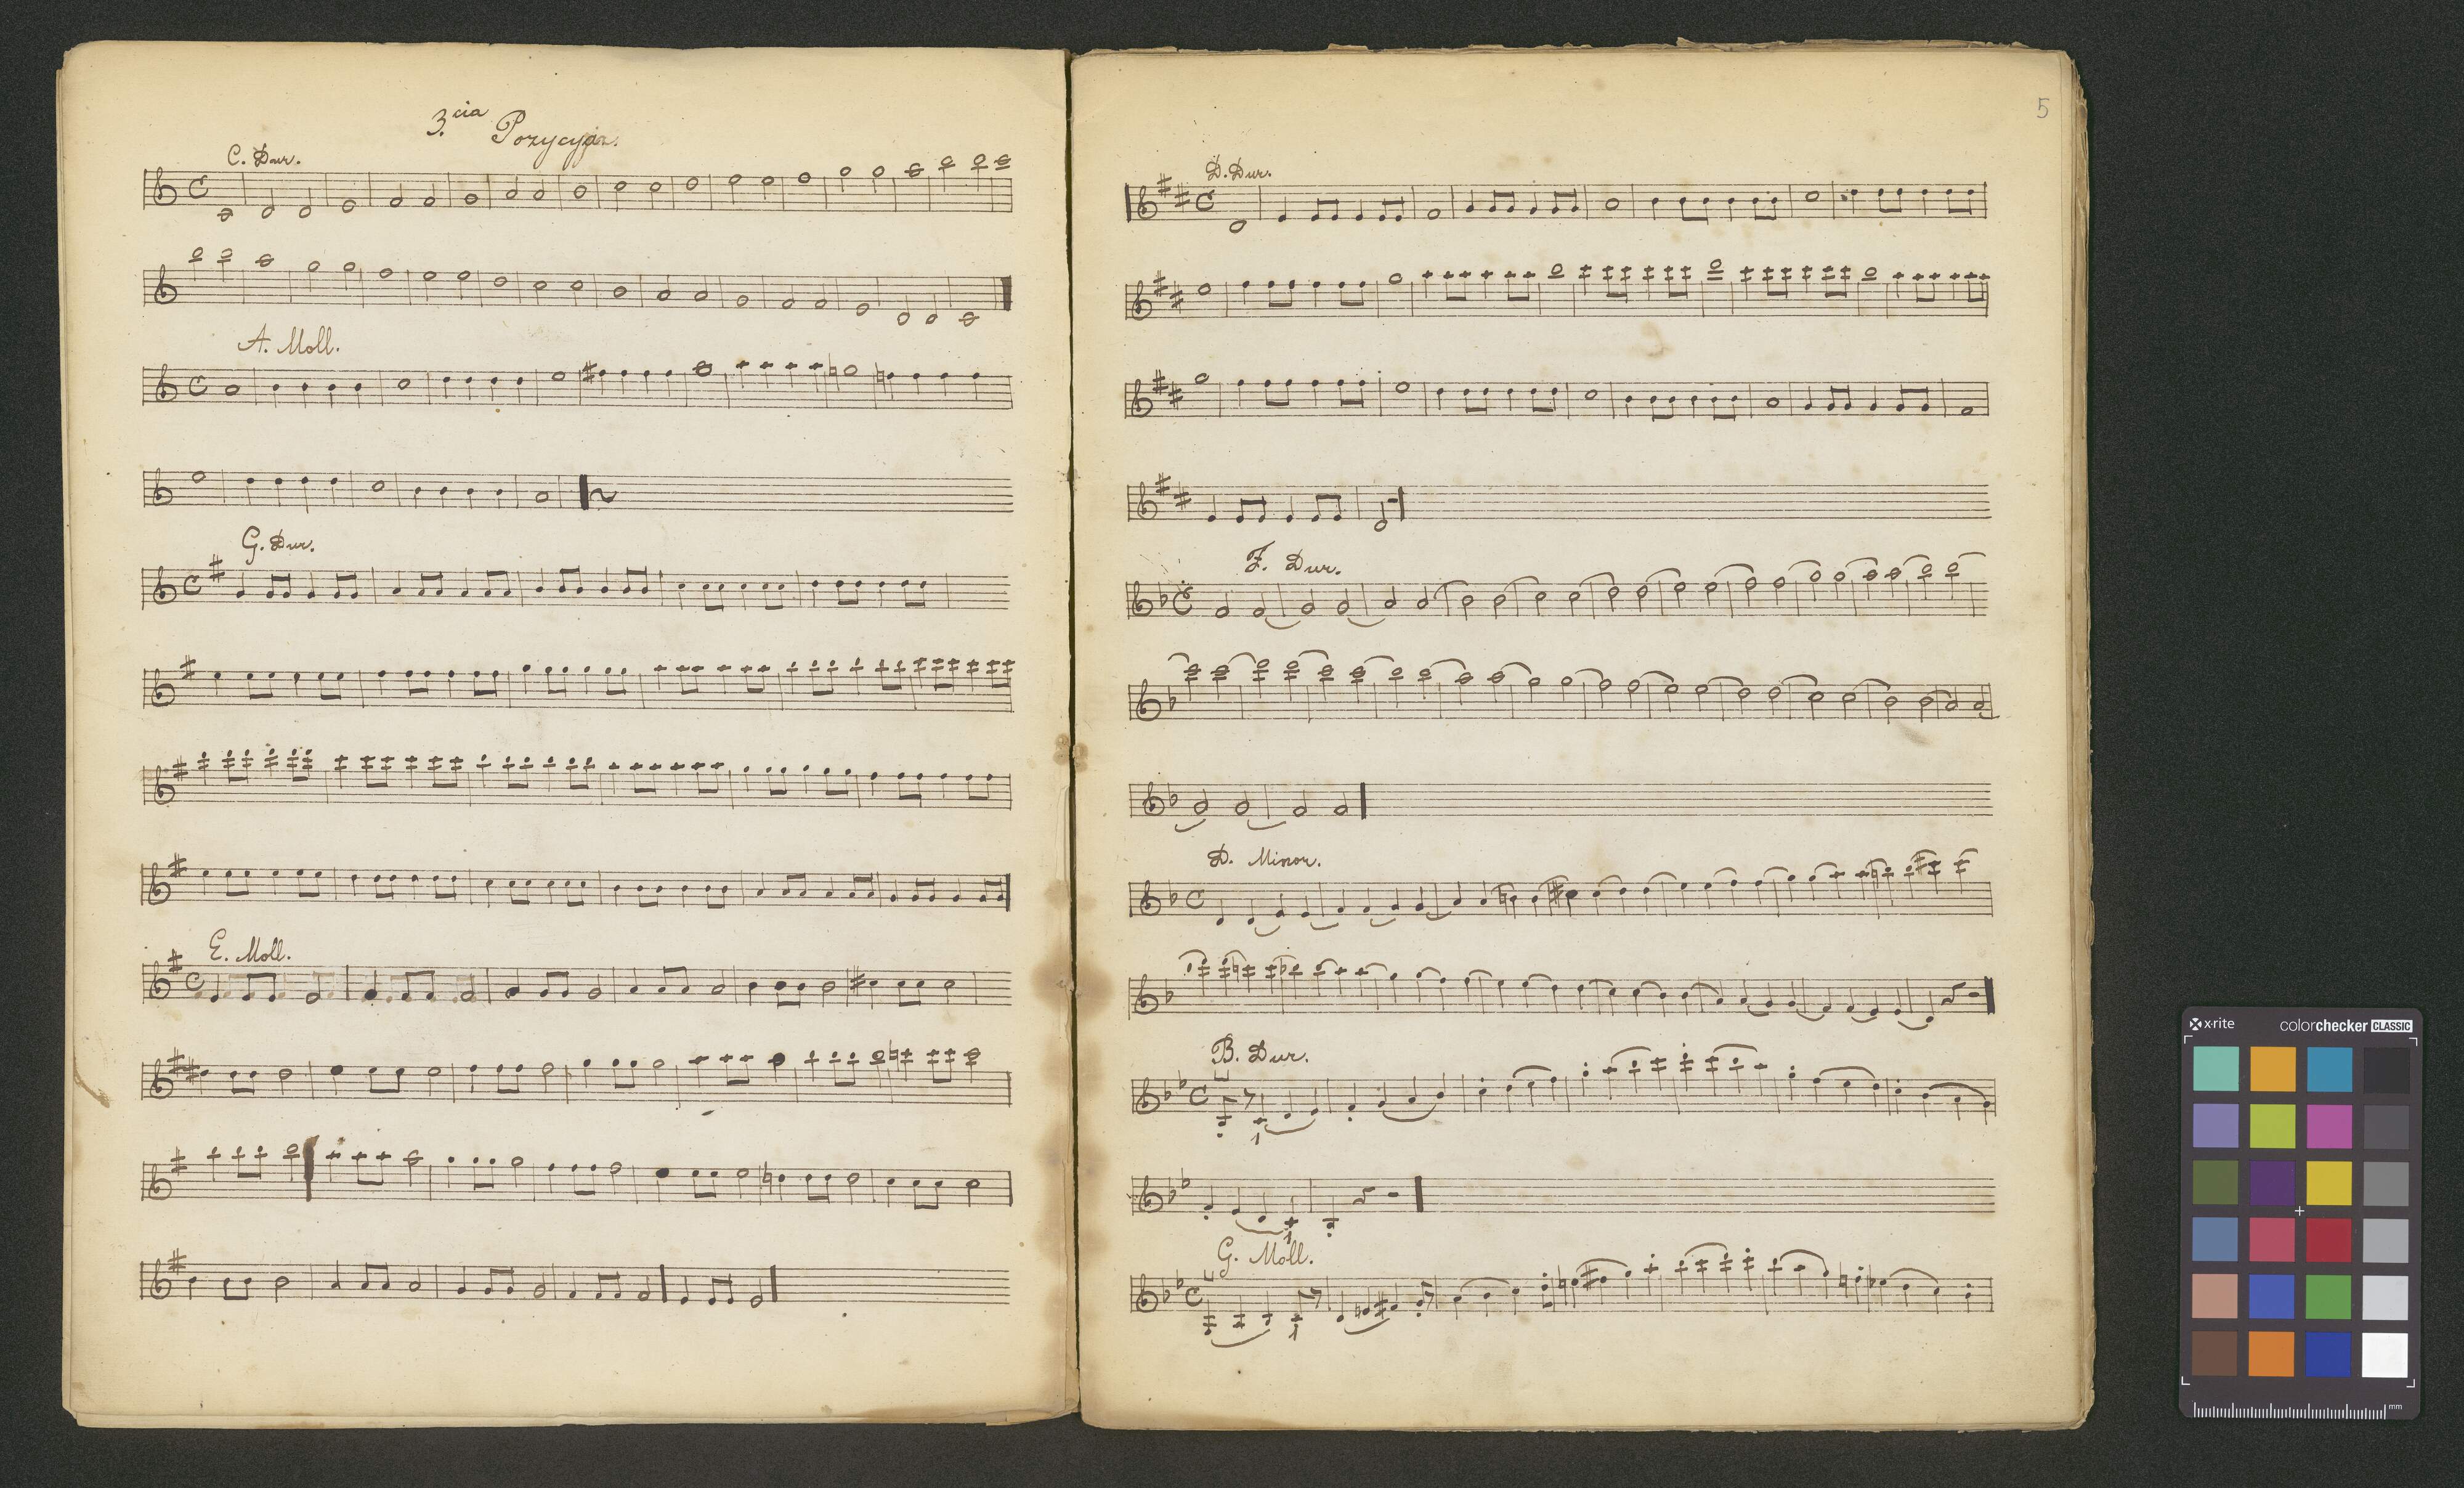 3.cia Pozycyja.
C. Dur.
A. Moll.
G. Dur.
E. Moll.
5
D. Dur.
F. Dur.
D. Minor.
B. Dur.
1
1
G. Moll.
1
x-rite colorchecker CLASSIC
mm